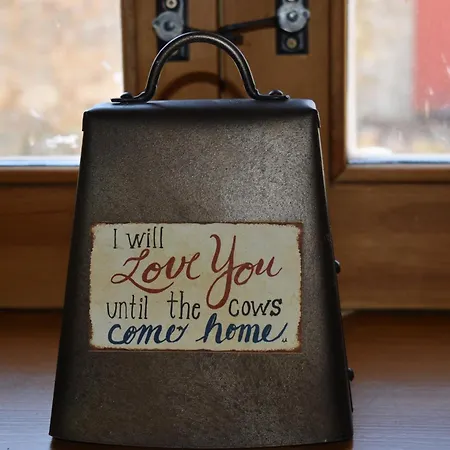 I will
Love You
until the cows
come home